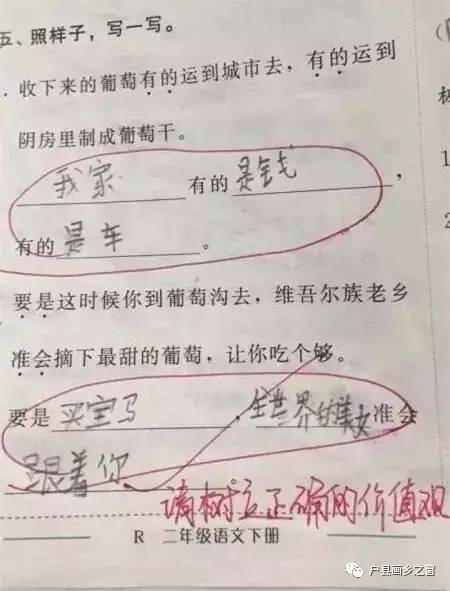 五、照样子，写一写。
收下来的葡萄有的运到城市去，有的运到
阴房里制成葡萄干。
我家有的是钱，
有的是车。
要是这时候你到葡萄沟去，维吾尔族老乡
准会摘下最甜的葡萄，让你吃个够。
要是买宝马，全世界的美女准会
跟着你。
请树立正确的价值观
R 二年级语文下册
户县画乡之窗